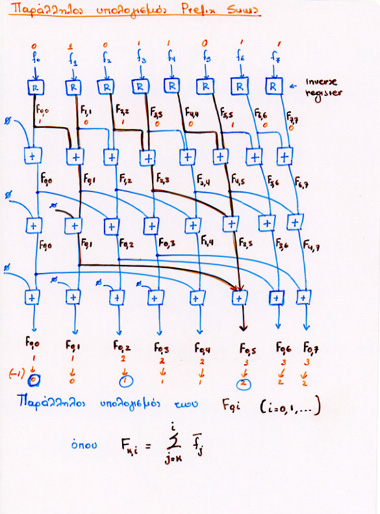 Παράλληλος υπολογισμός Prefix Sums
0 1 0 1 1 0 1 1
f₀ f₁ f₂ f₃ f₄ f₅ f₆ f₇
R R R R R R R R ← Inverse
register
F₀,₀ F₁,₁ F₂,₂ F₃,₃ F₄,₄ F₅,₅ F₆,₆
1 0 1 0 0 1 0 0
∅ + + + + + + + +
F₀,₀ F₀,₁ F₁,₂ F₂,₃ F₃,₄ F₄,₅ F₅,₆ F₆,₇
∅ ∅ + + + + + + + +
F₀,₀ F₀,₁ F₀,₂ F₀,₃ F₁,₄ F₂,₅ F₃,₆ F₄,₇
∅ ∅ ∅ ∅ + + + + + + + +
F₀,₀ F₀,₁ F₀,₂ F₀,₃ F₀,₄ F₀,₅ F₀,₆ F₀,₇
1 1 2 2 2 3 3 3
(-1) 0 0 1 1 1 2 2 2
Παράλληλος υπολογισμός των F₀,i (i=0,1,...)
όπου F κ,i = Σ f̄j
i
j=κ